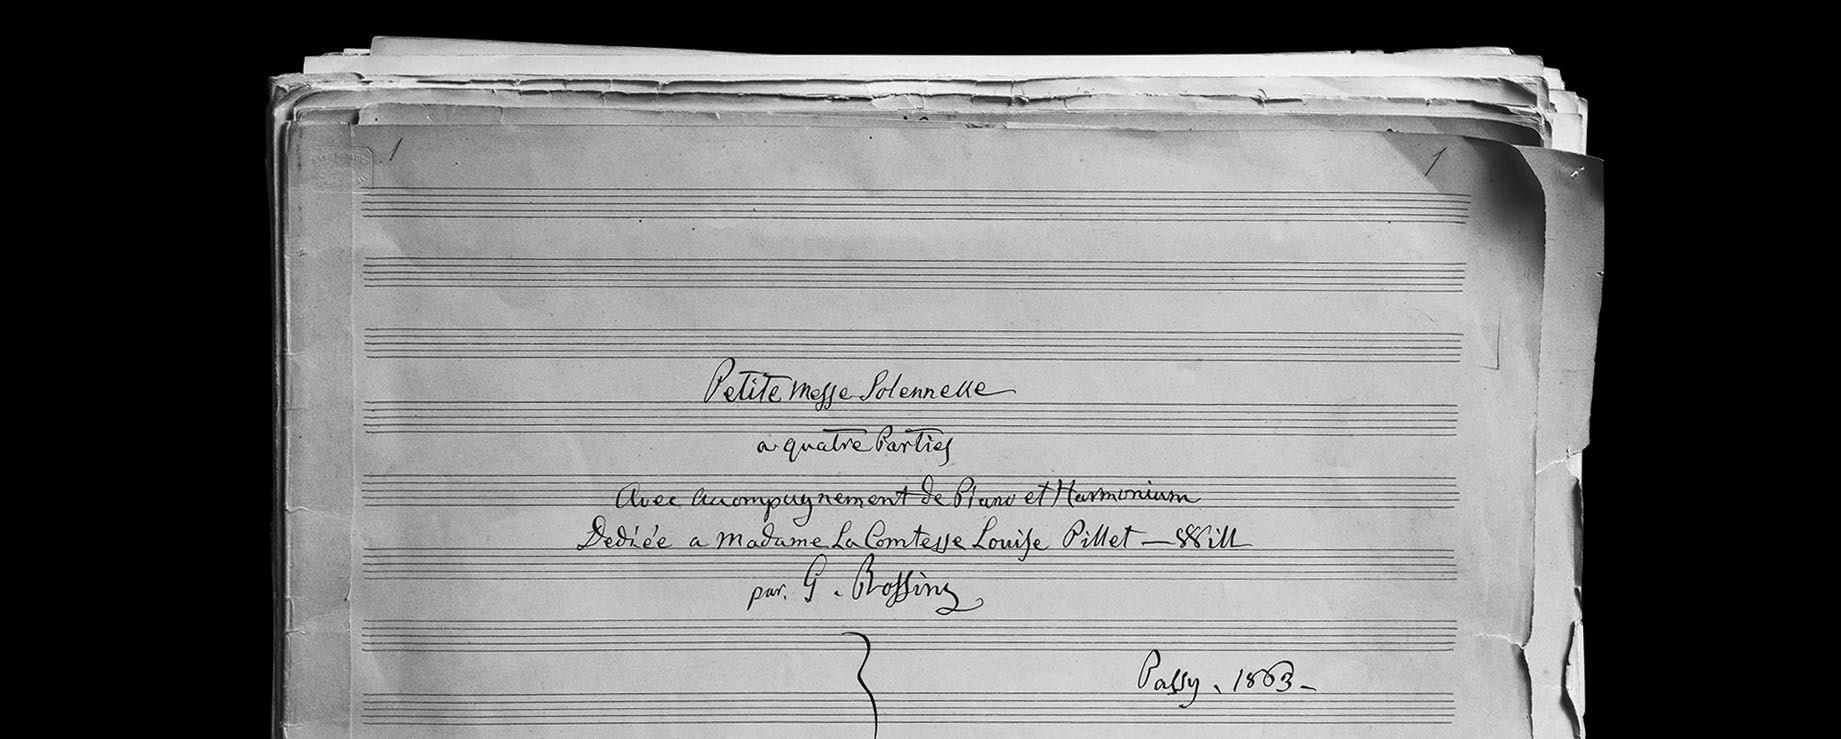 1 1
Petite Messe Solennelle
a quatre Parties
Avec accompagnement de Piano et Harmonium
Dediée a Madame La Comtesse Louise Pillet — Will
par. G. Rossini
Passy. 1863 –